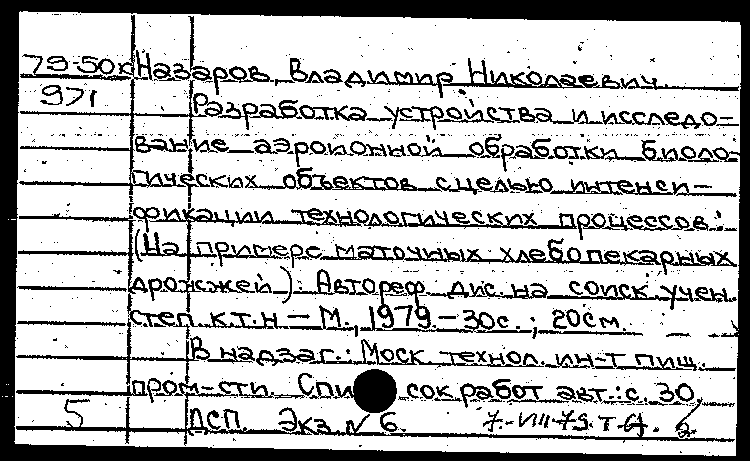 79-50к Назаров, Владимир Николаевич.
971 Разработка устройства и исследо-
вание аэроионной обработки биоло-
гических объектов с целью интенси-
фикации технологических процессов:
(На примере маточных хлебопекарных
дрожжей). Автореф. дис. на соиск. учен.
степ. к.т.н. – М., 1979. – 30с.; 20см.
В надзаг.: Моск. технол. ин-т пищ.
пром-сти. Список работ авт.: с. 30.
5 ДСП. Экз. № 6. 7-VIII-79.